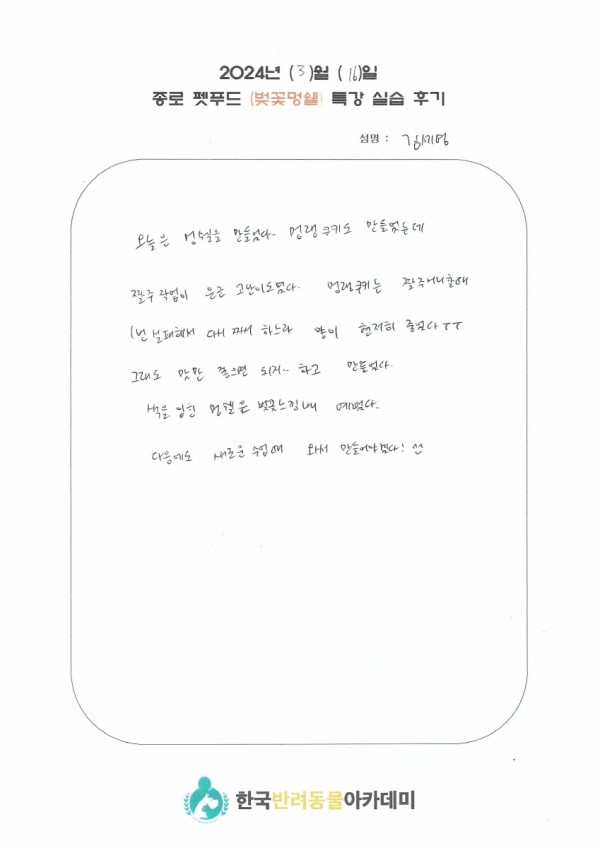 2024년 (3)월 (16)일
종로 펫푸드 (벚꽃멍쉘) 특강 실습 후기
성명 : 김세영
오늘은 멍쉘을 만들었다. 멍랭쿠키도 만들었는데
짤주작업이 은근 고난이도였다. 멍랭쿠키는 짤주머니할때
1번 실패해서 다시 짜서 하느라 양이 현저히 줄었다ㅜㅜ
그래도 맛만 좋으면 되지.. 하고 만들었다.
색을 입힌 멍쉘은 벚꽃느낌나서 예뻤다.
다음에도 새로운 수업때 와서 만들어야겠다! ^^
한국반려동물아카데미